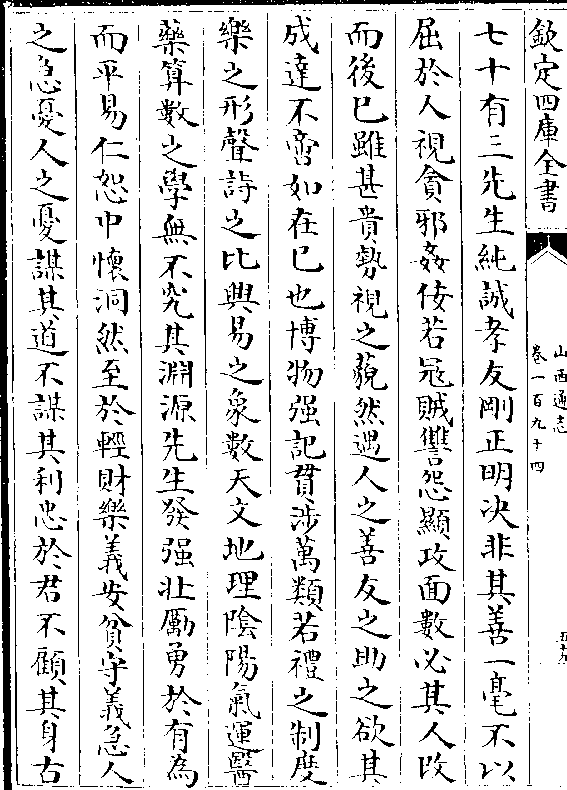 欽定四庫全書
山西通志
卷一百九十四
七十有三先生純誠孝友剛正明决非其善一毫不以
屈於人視貪邪姦佞若冦賊讐怨顯攻面數必其人改
而後已雖甚貴勢視之藐然遇人之善友之助之欲其
成達不啻如在已也博物强記貫涉萬類若禮之制度
樂之形聲詩之比興易之象數天文地理陰陽氣運醫
藥算數之學無不究其淵源先生發强壯勵勇於有為
而平易仁恕中懷洞然至於輕財樂義安貧守義急人
之急憂人之憂謀其道不謀其利忠於君不顧其身古